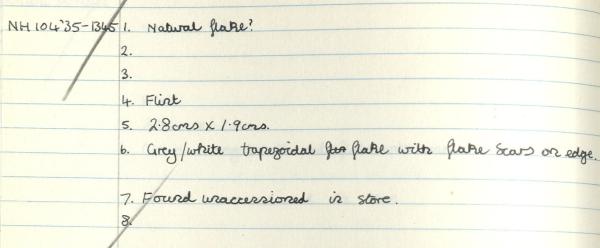 NH104'35-1345 1. Natural flake?
2.
3.
4. Flint
5. 2.8cms x 1.9cms.
6. Grey/white trapezoidal flake with flake scars on edge.
7. Found unaccessioned in store.
8.